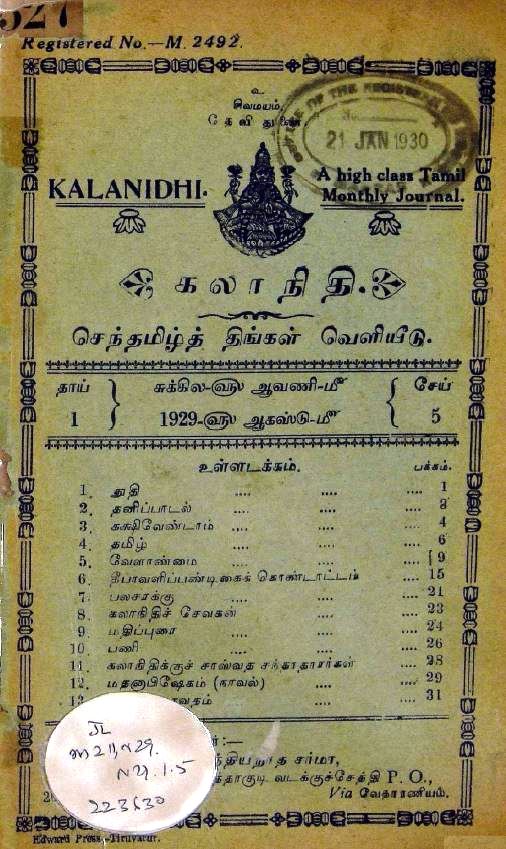 327
Registered No.—M. 2492.
உ
வெமயம்.
தேவி துணை.
21 JAN 1930
KALANIDHI.
A high class Tamil
Monthly Journal.
கலாநிதி.
செந்தமிழ்த் திங்கள் வெளியீடு.
தாய் 1
சுக்கில-௵ ஆவணி-௴
1929-௵ ஆகஸ்டு-௴
சேய் 5
உள்ளடக்கம். பக்கம்.
1. துதி .... .... .... 1
2. தனிப்பாடல் .... .... .... 3
3. கக்ஷிவேண்டாம் .... .... .... 4
4. தமிழ் .... .... .... 6
5. வேளாண்மை .... .... .... 9
6. தீபாவளிப்பண்டிகைக் கொண்டாட்டம் .... 15
7. பலசரக்கு .... .... .... 21
8. கலாநிதிச் சேவகன் .... .... .... 23
9. மதிப்புரை .... .... .... 24
10. பணி .... .... .... 26
11. கலாநிதிக்குச் சாஸ்வத சந்தாதாரர்கள் .... 28
12. மதனாபிஷேகம் (நாவல்) .... .... 29
13. .... .... 31
சர்மா,
வடக்குச்சேத்தி P. O.,
Via வேதாரணியம்.
JL
N29.1.5
223630
Edward Press, Tiruvarur.